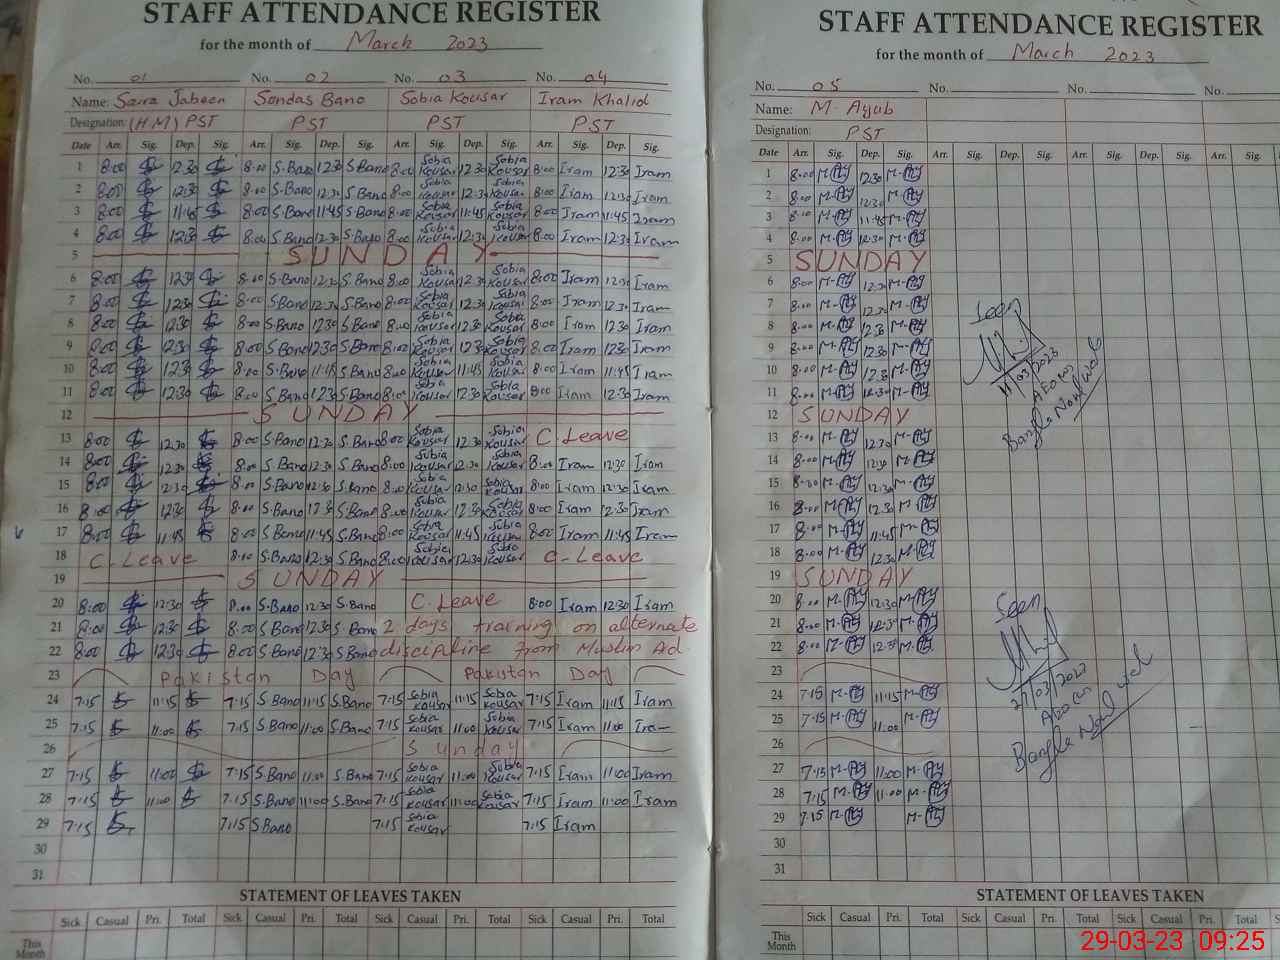 STAFF ATTENDANCE REGISTER
for the month of March 2023
No. 01 No. 02 No. 03 No. 04
Name: Saira Jabeen Sondas Bano Sobia Kousar Iram Khalid
Designation: (HM) PST PST PST PST
Date Arr. Sig. Dep. Sig. Arr. Sig. Dep. Sig. Arr. Sig. Dep. Sig. Arr. Sig. Dep. Sig.
1 8:00 12:30 8:00 S.Bano 12:30 S.Bano 8:00 Sobia Kousar 12:30 Sobia Kousar 8:00 Iram 12:30 Iram
2 8:00 12:30 8:00 S.Bano 12:30 S.Bano 8:00 Sobia Kousar 12:30 Sobia Kousar 8:00 Iram 12:30 Iram
3 8:00 11:45 8:00 S.Bano 11:45 S.Bano 8:00 Sobia Kousar 11:45 Sobia Kousar 8:00 Iram 11:45 Iram
4 8:00 12:30 8:00 S.Bano 12:30 S.Bano 8:00 Sobia Kousar 12:30 Sobia Kousar 8:00 Iram 12:30 Iram
5 SUNDAY
6 8:00 12:30 8:00 S.Bano 12:30 S.Bano 8:00 Sobia Kousar 12:30 Sobia Kousar 8:00 Iram 12:30 Iram
7 8:00 12:30 8:00 S.Bano 12:30 S.Bano 8:00 Sobia Kousar 12:30 Sobia Kousar 8:00 Iram 12:30 Iram
8 8:00 12:30 8:00 S.Bano 12:30 S.Bano 8:00 Sobia Kousar 12:30 Sobia Kousar 8:00 Iram 12:30 Iram
9 8:00 12:30 8:00 S.Bano 12:30 S.Bano 8:00 Sobia Kousar 12:30 Sobia Kousar 8:00 Iram 12:30 Iram
10 8:00 12:30 8:00 S.Bano 11:45 S.Bano 8:00 Sobia Kousar 11:45 Sobia Kousar 8:00 Iram 11:45 Iram
11 8:00 12:30 8:00 S.Bano 12:30 S.Bano 8:00 Sobia Kousar 12:30 Sobia Kousar 8:00 Iram 12:30 Iram
12 SUNDAY
13 8:00 12:30 8:00 S.Bano 12:30 S.Bano 8:00 Sobia Kousar 12:30 Sobia Kousar C.Leave
14 8:00 12:30 8:00 S.Bano 12:30 S.Bano 8:00 Sobia Kousar 12:30 Sobia Kousar 8:00 Iram 12:30 Iram
15 8:00 12:30 8:00 S.Bano 12:30 S.Bano 8:00 Sobia Kousar 12:30 Sobia Kousar 8:00 Iram 12:30 Iram
16 8:00 12:30 8:00 S.Bano 12:30 S.Bano 8:00 Sobia Kousar 12:30 Sobia Kousar 8:00 Iram 12:30 Iram
17 8:00 11:45 8:00 S.Bano 11:45 S.Bano 8:00 Sobia Kousar 11:45 Sobia Kousar 8:00 Iram 11:45 Iram
18 C-Leave 8:00 S.Bano 12:30 S.Bano 8:00 Sobia Kousar 12:30 Sobia Kousar C-Leave
19 SUNDAY
20 8:00 12:30 8:00 S.Bano 12:30 S.Bano C.Leave 8:00 Iram 12:30 Iram
21 8:00 12:30 8:00 S.Bano 12:30 S.Bano 2 days training on alternate
22 8:00 12:30 8:00 S.Bano 12:30 S.Bano discipline from Muslim Ad.
23 Pakistan Day Pakistan Day
24 7:15 11:15 7:15 S.Bano 11:15 S.Bano 7:15 Sobia Kousar 11:15 Sobia Kousar 7:15 Iram 11:15 Iram
25 7:15 11:00 7:15 S.Bano 11:00 S.Bano 7:15 Sobia Kousar 11:00 Sobia Kousar 7:15 Iram 11:00 Iram
26 Sunday
27 7:15 11:00 7:15 S.Bano 11:00 S.Bano 7:15 Sobia Kousar 11:00 Sobia Kousar 7:15 Iram 11:00 Iram
28 7:15 11:00 7:15 S.Bano 11:00 S.Bano 7:15 Sobia Kousar 11:00 Sobia Kousar 7:15 Iram 11:00 Iram
29 7:15 7:15 S.Bano 7:15 Sobia Kousar 7:15 Iram
30
31
STATEMENT OF LEAVES TAKEN
Sick Casual Pri. Total Sick Casual Pri. Total Sick Casual Pri. Total Sick Casual Pri. Total
This Month
STAFF ATTENDANCE REGISTER
for the month of March 2023
No. 05 No. No. No.
Name: M. Ayub
Designation: PST
Date Arr. Sig. Dep. Sig. Arr. Sig. Dep. Sig. Arr. Sig. Dep. Sig. Arr. Sig.
1 8:00 12:30
2 8:00 12:30
3 8:00 11:45
4 8:00 12:30
5 SUNDAY
6 8:00 12:30
7 8:00 12:30
8 8:00 12:30
9 8:00 12:30
10 8:00 12:30
11 8:00 12:30
12 SUNDAY
13 8:00 12:30
14 8:00 12:30
15 8:00 12:30
16 8:00 12:30
17 8:00 11:45
18 8:00 12:30
19 SUNDAY
20 8:00 12:30
21 8:00 12:30
22 8:00 12:30
23
24 7:15 11:15
25 7:15 11:00
26
27 7:15 11:00
28 7:15 11:00
29 7:15
30
31
Seen
11/03/2023
Seen
21/03/2023
STATEMENT OF LEAVES TAKEN
Sick Casual Pri. Total Sick Casual Pri. Total Sick Casual Pri. Total Sick
This Month
29-03-23 09:25